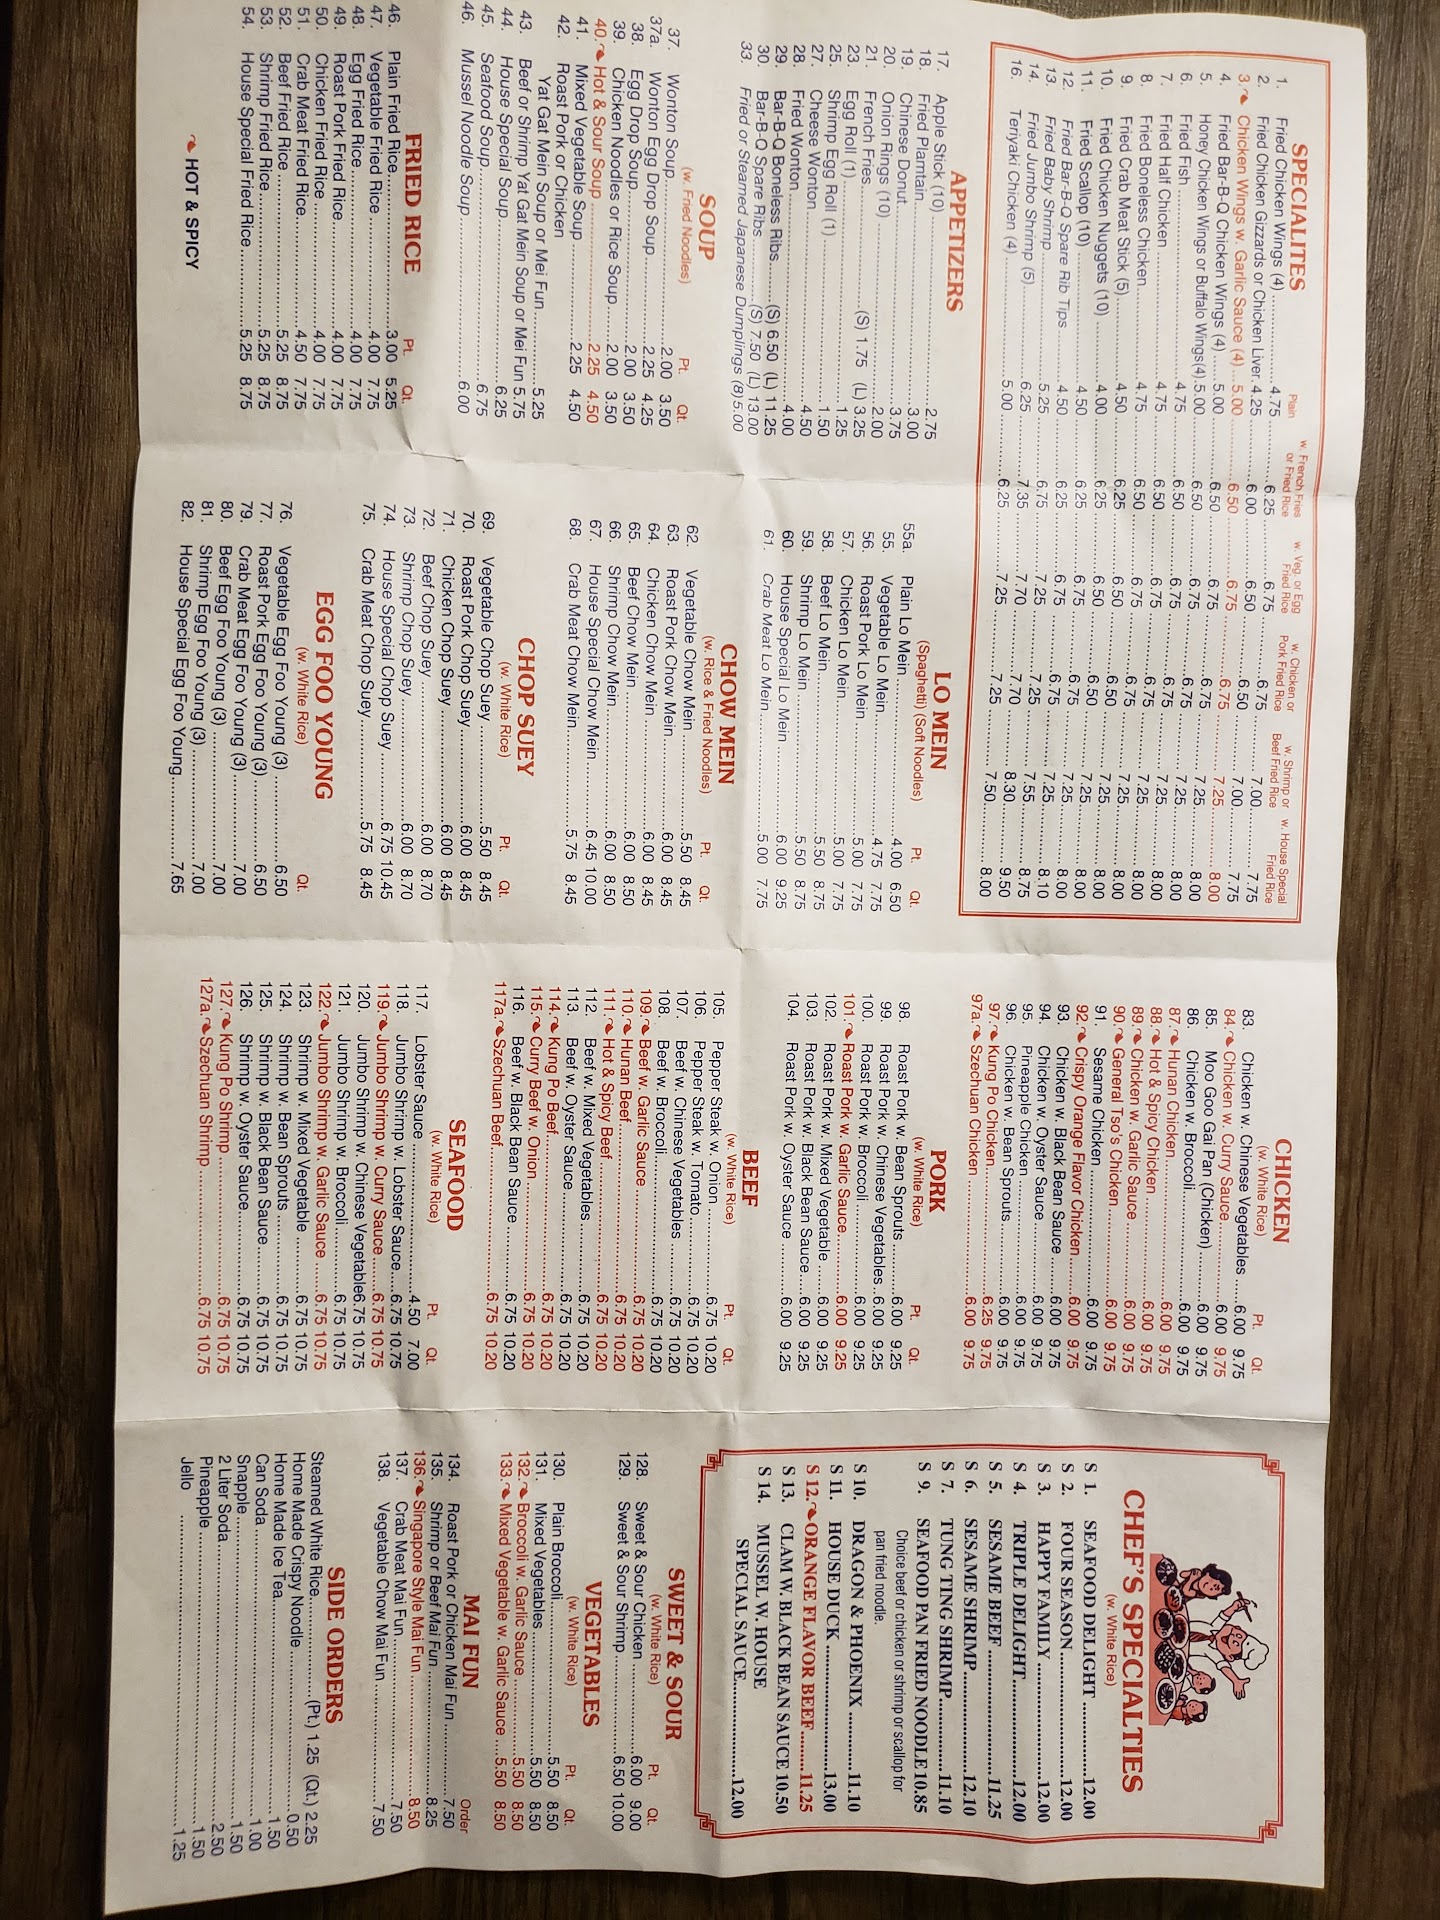 SPECIALITES
Plain
w. French Fries or Fried Rice
w. Veg. or Egg Fried Rice
w. Chicken or Pork Fried Rice
w. Shrimp or Beef Fried Rice
w. House Special Fried Rice
1. Fried Chicken Wings (4) 4.75 6.25 6.75 6.75 7.00 7.75
2. Fried Chicken Gizzards or Chicken Liver 4.25 6.00 6.50 6.50 7.00 7.75
3. Chicken Wings w. Garlic Sauce (4) 5.00 6.50 6.75 6.75 7.25 8.00
4. Fried Bar-B-Q Chicken Wings (4) 5.00 6.50 6.75 6.75 7.25 8.00
5. Honey Chicken Wings or Buffalo Wings(4) 5.00 6.50 6.75 6.75 7.25 8.00
6. Fried Fish 4.75 6.50 6.75 6.75 7.25 8.00
7. Fried Half Chicken 4.75 6.50 6.75 6.75 7.25 8.00
8. Fried Boneless Chicken 4.75 6.50 6.75 6.75 7.25 8.00
9. Fried Crab Meat Stick (5) 4.50 6.25 6.75 6.75 7.25 8.00
10. Fried Chicken Nuggets (10) 4.00 6.25 6.50 6.50 7.25 8.00
11. Fried Scallop (10) 4.50 6.25 6.50 6.50 7.25 8.00
12. Fried Bar-B-Q Spare Rib Tips 4.50 6.25 6.75 6.75 7.25 8.00
13. Fried Baby Shrimp 5.25 6.75 7.25 7.25 7.55 8.10
14. Fried Jumbo Shrimp (5) 6.25 7.35 7.70 7.70 8.30 8.75
16. Teriyaki Chicken (4) 5.00 6.25 7.25 7.25 7.50 8.00
APPETIZERS
17. Apple Stick (10) 2.75
18. Fried Plamtain 3.00
19. Chinese Donut 3.75
20. Onion Rings (10) 2.00
21. French Fries (S) 1.75 (L) 3.25
23. Egg Roll (1) 1.25
25. Shrimp Egg Roll (1) 1.50
27. Cheese Wonton 4.50
28. Fried Wonton 4.00
29. Bar-B-Q Boneless Ribs (S) 6.50 (L) 11.25
30. Bar-B-Q Spare Ribs (S) 7.50 (L) 13.00
33. Fried or Steamed Japanese Dumplings (8) 5.00
SOUP
(w. Fried Noodles)
Pt. Qt.
37. Wonton Soup 2.00 3.50
37a. Wonton Egg Drop Soup 2.25 4.25
38. Egg Drop Soup 2.00 3.50
39. Chicken Noodles or Rice Soup 2.00 3.50
40. Hot & Sour Soup 2.25 4.50
41. Mixed Vegetable Soup 2.25 4.50
42. Roast Pork or Chicken
Yat Gat Mein Soup or Mei Fun 5.25
43. Beef or Shrimp Yat Gat Mein Soup or Mei Fun 5.75
44. House Special Soup 6.25
45. Seafood Soup 6.75
46. Mussel Noodle Soup 6.00
FRIED RICE
Pt. Qt.
46. Plain Fried Rice 3.00 5.25
47. Vegetable Fried Rice 4.00 7.75
48. Egg Fried Rice 4.00 7.75
49. Roast Pork Fried Rice 4.00 7.75
50. Chicken Fried Rice 4.00 7.75
51. Crab Meat Fried Rice 4.50 7.75
52. Beef Fried Rice 5.25 8.75
53. Shrimp Fried Rice 5.25 8.75
54. House Special Fried Rice 5.25 8.75
HOT & SPICY
LO MEIN
(Spaghetti) (Soft Noodles)
Pt. Qt.
55a. Plain Lo Mein 4.00 6.50
55. Vegetable Lo Mein 4.75 7.75
56. Roast Pork Lo Mein 5.00 7.75
57. Chicken Lo Mein 5.00 7.75
58. Beef Lo Mein 5.50 8.75
59. Shrimp Lo Mein 5.50 8.75
60. House Special Lo Mein 6.00 9.25
61. Crab Meat Lo Mein 5.00 7.75
CHOW MEIN
(w. Rice & Fried Noodles)
Pt. Qt.
62. Vegetable Chow Mein 5.50 8.45
63. Roast Pork Chow Mein 6.00 8.45
64. Chicken Chow Mein 6.00 8.45
65. Beef Chow Mein 6.00 8.50
66. Shrimp Chow Mein 6.00 8.50
67. House Special Chow Mein 6.45 10.00
68. Crab Meat Chow Mein 5.75 8.45
CHOP SUEY
(w. White Rice)
Pt. Qt.
69. Vegetable Chop Suey 5.50 8.45
70. Roast Pork Chop Suey 6.00 8.45
71. Chicken Chop Suey 6.00 8.45
72. Beef Chop Suey 6.00 8.70
73. Shrimp Chop Suey 6.00 8.70
74. House Special Chop Suey 6.75 10.45
75. Crab Meat Chop Suey 5.75 8.45
EGG FOO YOUNG
(w. White Rice)
Qt.
76. Vegetable Egg Foo Young (3) 6.50
77. Roast Pork Egg Foo Young (3) 6.50
79. Crab Meat Egg Foo Young (3) 7.00
80. Beef Egg Foo Young (3) 7.00
81. Shrimp Egg Foo Young (3) 7.00
82. House Special Egg Foo Young 7.65
CHICKEN
(w. White Rice)
Pt. Qt.
83. Chicken w. Chinese Vegetables 6.00 9.75
84. Chicken w. Curry Sauce 6.00 9.75
85. Moo Goo Gai Pan (Chicken) 6.00 9.75
86. Chicken w. Broccoli 6.00 9.75
87. Hunan Chicken 6.00 9.75
88. Hot & Spicy Chicken 6.00 9.75
89. Chicken w. Garlic Sauce 6.00 9.75
90. General Tso's Chicken 6.00 9.75
91. Sesame Chicken 6.00 9.75
92. Crispy Orange Flavor Chicken 6.00 9.75
93. Chicken w. Black Bean Sauce 6.00 9.75
94. Chicken w. Oyster Sauce 6.00 9.75
95. Pineapple Chicken 6.00 9.75
96. Chicken w. Bean Sprouts 6.00 9.75
97. Kung Po Chicken 6.25 9.75
97a. Szechuan Chicken 6.00 9.75
PORK
(w. White Rice)
Pt. Qt.
98. Roast Pork w. Bean Sprouts 6.00 9.25
99. Roast Pork w. Chinese Vegetables 6.00 9.25
100. Roast Pork w. Broccoli 6.00 9.25
101. Roast Pork w. Garlic Sauce 6.00 9.25
102. Roast Pork w. Mixed Vegetable 6.00 9.25
103. Roast Pork w. Black Bean Sauce 6.00 9.25
104. Roast Pork w. Oyster Sauce 6.00 9.25
BEEF
(w. White Rice)
Pt. Qt.
105. Pepper Steak w. Onion 6.75 10.20
106. Pepper Steak w. Tomato 6.75 10.20
107. Beef w. Chinese Vegetables 6.75 10.20
108. Beef w. Broccoli 6.75 10.20
109. Beef w. Garlic Sauce 6.75 10.20
110. Hunan Beef 6.75 10.20
111. Hot & Spicy Beef 6.75 10.20
112. Beef w. Mixed Vegetables 6.75 10.20
113. Beef w. Oyster Sauce 6.75 10.20
114. Kung Po Beef 6.75 10.20
115. Curry Beef w. Onion 6.75 10.20
116. Beef w. Black Bean Sauce 6.75 10.20
117a. Szechuan Beef 6.75 10.20
SEAFOOD
(w. White Rice)
Pt. Qt.
117. Lobster Sauce 4.50 7.00
118. Jumbo Shrimp w. Lobster Sauce 6.75 10.75
119. Jumbo Shrimp w. Curry Sauce 6.75 10.75
120. Jumbo Shrimp w. Chinese Vegetable 6.75 10.75
121. Jumbo Shrimp w. Broccoli 6.75 10.75
122. Jumbo Shrimp w. Garlic Sauce 6.75 10.75
123. Shrimp w. Mixed Vegetable 6.75 10.75
124. Shrimp w. Bean Sprouts 6.75 10.75
125. Shrimp w. Black Bean Sauce 6.75 10.75
126. Shrimp w. Oyster Sauce 6.75 10.75
127. Kung Po Shrimp 6.75 10.75
127a. Szechuan Shrimp 6.75 10.75
CHEF'S SPECIALTIES
(w. White Rice)
S 1. SEAFOOD DELIGHT 12.00
S 2. FOUR SEASON 12.00
S 3. HAPPY FAMILY 12.00
S 4. TRIPLE DELIGHT 12.00
S 5. SESAME BEEF 11.25
S 6. SESAME SHRIMP 12.10
S 7. TUNG TING SHRIMP 11.10
S 9. SEAFOOD PAN FRIED NOODLE 10.85
Choice beef or chicken or shrimp or scallop for
pan fried noodle.
S 10. DRAGON & PHOENIX 11.10
S 11. HOUSE DUCK 13.00
S 12. ORANGE FLAVOR BEEF 11.25
S 13. CLAM W. BLACK BEAN SAUCE 10.50
S 14. MUSSEL W. HOUSE
SPECIAL SAUCE 12.00
SWEET & SOUR
(w. White Rice)
Pt. Qt.
128. Sweet & Sour Chicken 6.00 9.00
129. Sweet & Sour Shrimp 6.50 10.00
VEGETABLES
(w. White Rice)
Pt. Qt.
130. Plain Broccoli 5.50 8.50
131. Mixed Vegetables 5.50 8.50
132. Broccoli w. Garlic Sauce 5.50 8.50
133. Mixed Vegetable w. Garlic Sauce 5.50 8.50
MAI FUN
Order
134. Roast Pork or Chicken Mai Fun 7.50
135. Shrimp or Beef Mai Fun 8.25
136. Singapore Style Mai Fun 8.50
137. Crab Meat Mai Fun 7.50
138. Vegetable Chow Mai Fun 7.50
SIDE ORDERS
Steamed White Rice (Pt.) 1.25 (Qt.) 2.25
Home Made Crispy Noodle 0.50
Home Made Ice Tea 1.50
Can Soda 1.00
Snapple 1.50
2 Liter Soda 2.50
Pineapple 1.50
Jello 1.25